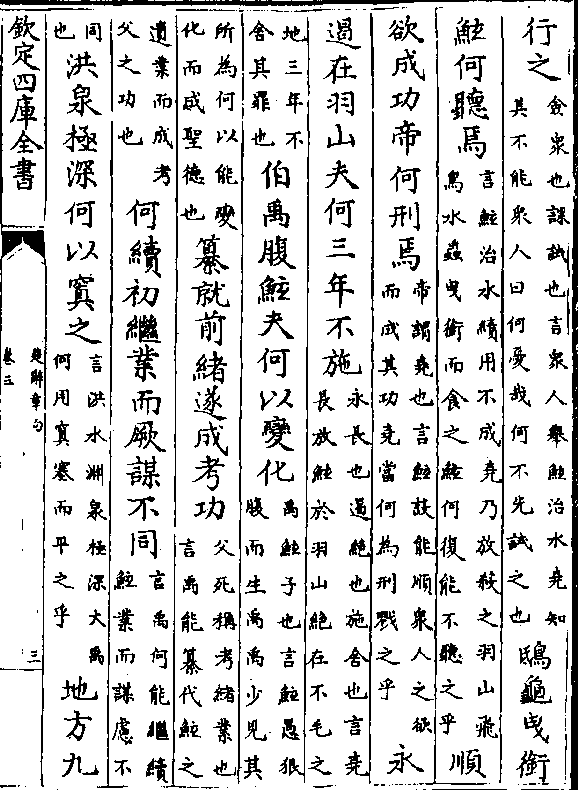 行之僉衆也課試也言衆人舉鮌治水堯知其不能衆人曰何憂哉何不先試之也鴟龜曳銜
鮌何聽焉言鮌治水績用不成堯乃放殺之羽山飛鳥水蟲曳銜而食之鮌何復能不聽之乎順
欲成功帝何刑焉帝謂堯也言鮌設能順衆人之欲而成其功堯當何為刑戮之乎永
遏在羽山夫何三年不施永長也遏絶也施舍也言堯長放鮌於羽山絶在不毛之
地三年不舍其罪也伯禹腹鮌夫何以變化禹鮌子也言鮌愚狠腹而生禹禹少見其
所為何以能變化而成聖德也纂就前緒遂成考功父死稱考緒業也言禹能纂代鮌之
遺業而成考父之功也何續初繼業而厥謀不同言禹何能繼續鮌業而謀慮不
同也洪泉極深何以窴之言洪水淵泉極深大禹何用窴塞而平之乎地方九
欽定四庫全書
楚辭章句
卷三
三